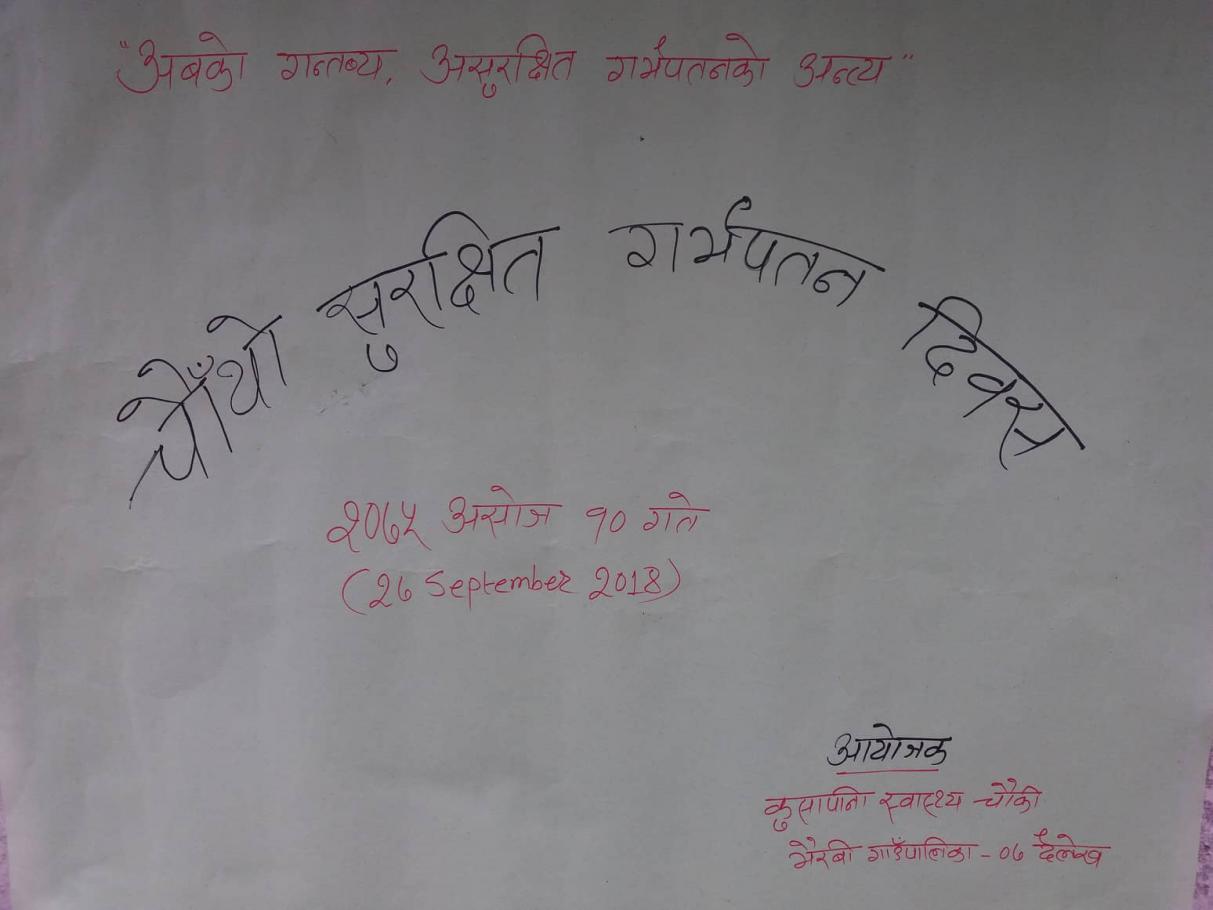 "अबको गन्तब्य, असुरक्षित गर्भपतनको अन्त्य"
चौँथो सुरक्षित गर्भपतन दिवस
२०७५ असोज १० गते
(26 September 2018)
आयोजक
कुसापानी स्वास्थ्य चौकी
भैरबी गाउँपालिका - ०७ दैलेख